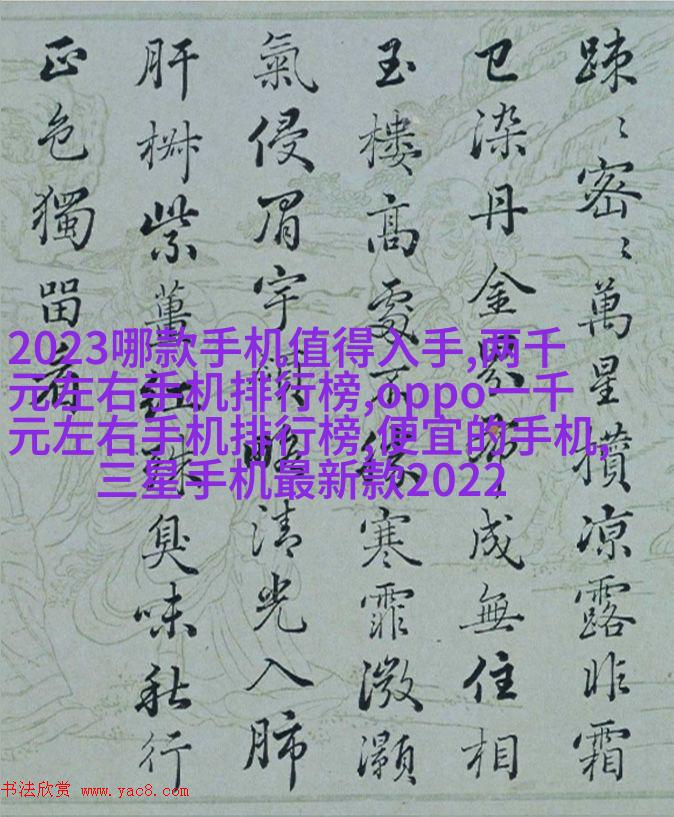 踈〻密〻萬星攢凉露昨霜
已染丹金界成無住相
玉樓高處不寒霏微灝
氣侵眉宇領略清光入肺
肝椒紫萸紅殊臭味秋行
正色獨留看
2023哪款手机值得入手,两千
元左右手机排行榜,oppo一千
元左右手机排行榜,便宜的手机,
三星手机最新款2022
书法欣赏 www.yac8.com